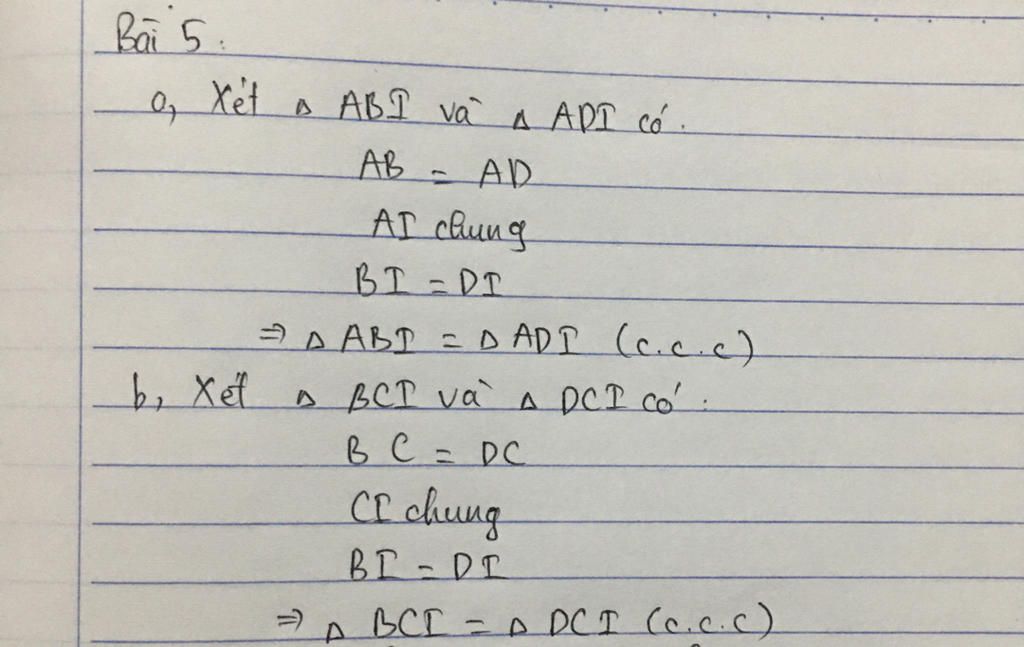 Bài 5:
a, Xét Δ ABI và Δ ADI có:
AB = AD
AI chung
BI = DI
⇒ Δ ABI = Δ ADI (c.c.c)
b, Xét Δ BCI và Δ DCI có:
BC = DC
CI chung
BI = DI
⇒ Δ BCI = Δ DCI (c.c.c)